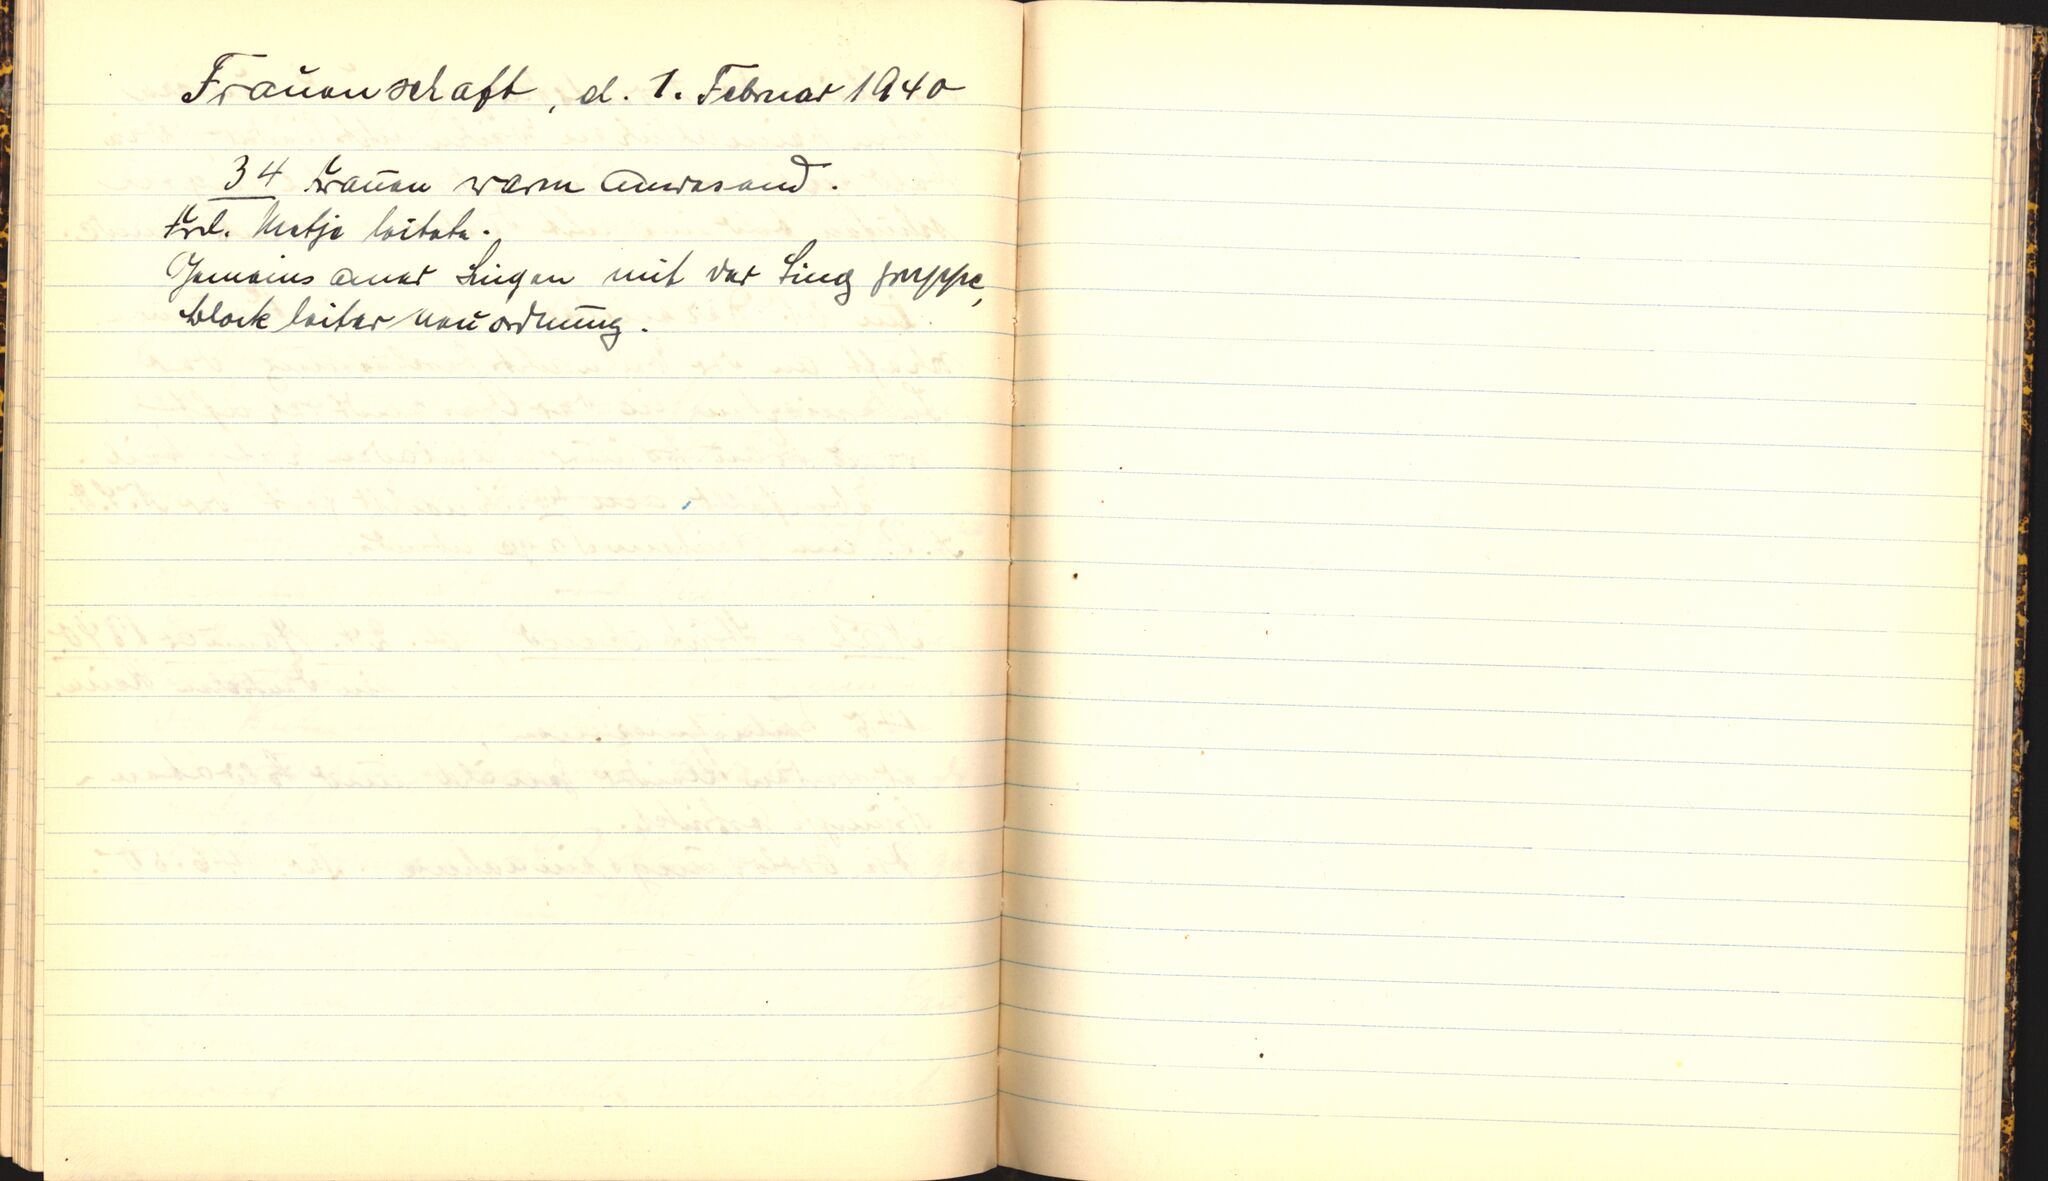 Frauenschaft, d. 1. Februar 1940
34 Frauen waren anwesend.
Frl. Metje leitete.
Gemeinsamer Singen mit der Sing gruppe,
blockleiter neuordnung.